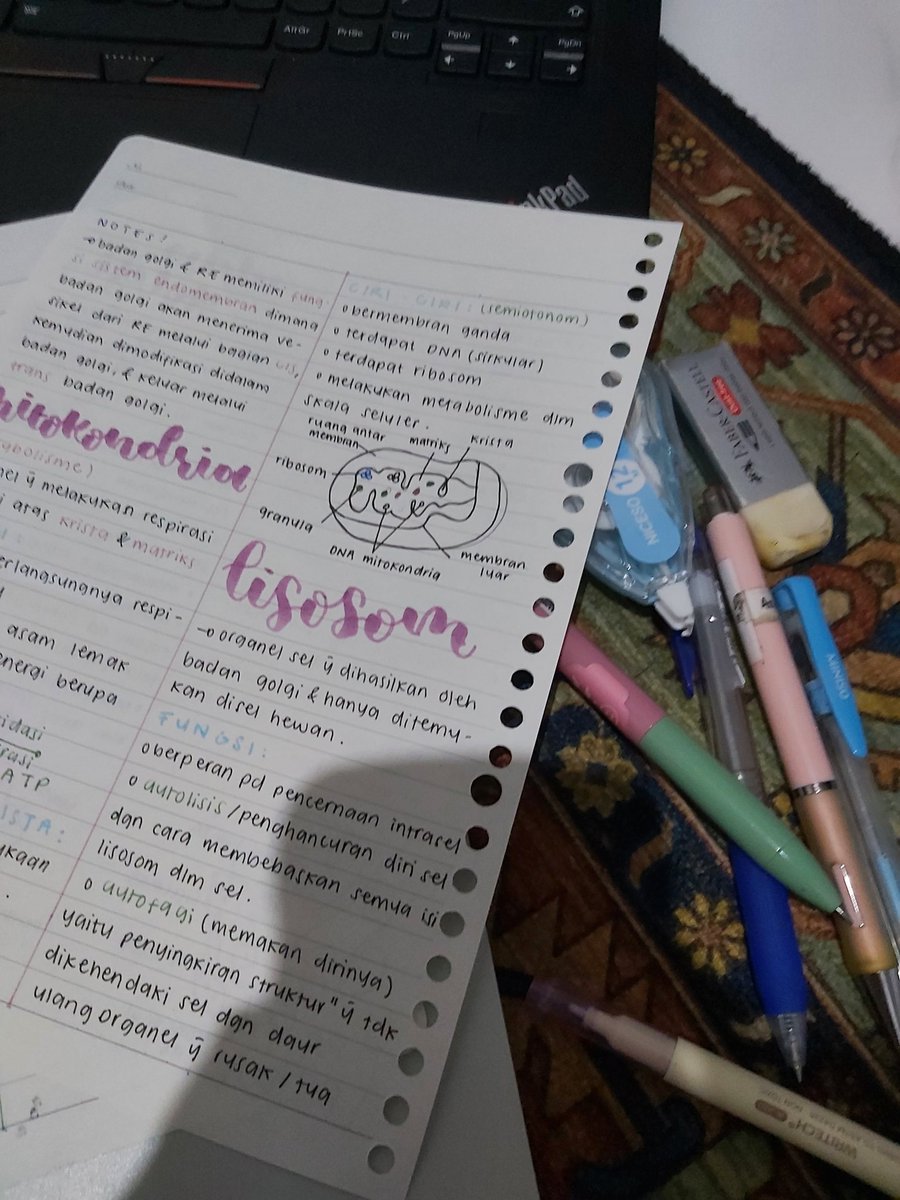 AltGr
PrtSc
Ctrl
PgUp
PgDn
nkPad
NOTES:
→ badan golgi & RE memiliki fung-
si sistem endomembran dimana
badan golgi akan menerima ve-
sikel dari RE melalui bagian cis,
kemudian dimodifikasi didalam
badan golgi, & keluar melalui
trans badan golgi.
itokondria
abolisme)
nel ÿ melakukan respirasi
i atas krista & matriks
:
erlangsungnya respi-
asam lemak
energi berupa
idasi
irasi
ATP
ISTA:
ukaan
CIRI - CIRI: (semiotonom)
o bermembran ganda
o terdapat DNA (sirkular)
o terdapat ribosom
o melakukan metabolisme dlm
skala seluler.
ruang antar
membran
matriks
krista
ribosom
granula
DNA mitokondria
membran
luar
lisosom
→ organel sel ÿ dihasilkan oleh
badan golgi & hanya ditemu-
kan disel hewan.
FUNGSI:
o berperan pd pencernaan intrasel
o autolisis/penghancuran diri sel
dgn cara membebaskan semua isi
lisosom dlm sel.
o autofagi (memakan dirinya)
yaitu penyingkiran struktur" ÿ tdk
dikehendaki sel dan daur
ulang organel ÿ rusak / tua
FABER-CASTELL
NICESO
WRITECH